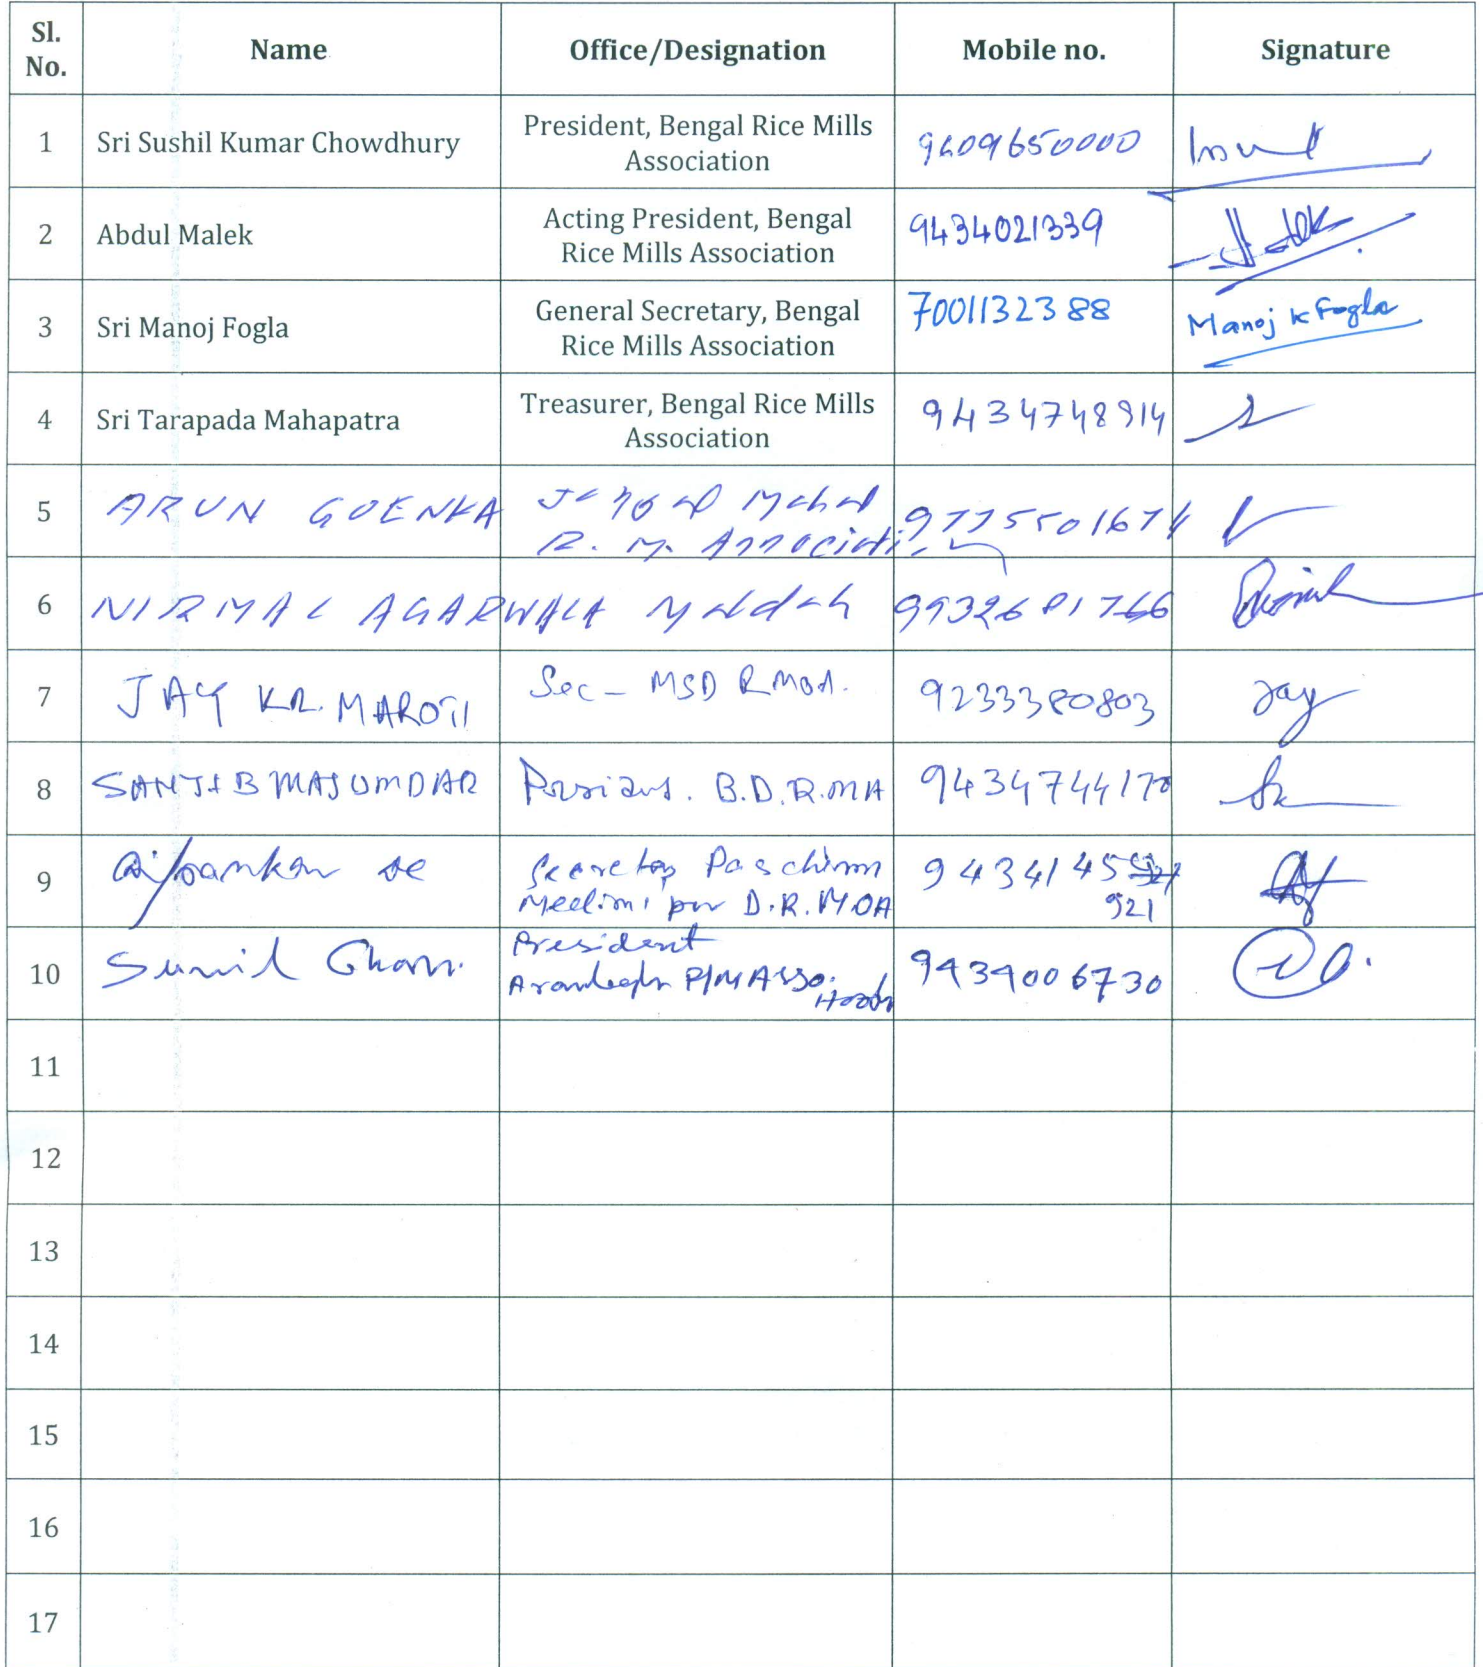 Sl. No. Name Office/Designation Mobile no. Signature
1 Sri Sushil Kumar Chowdhury President, Bengal Rice Mills Association 9609650000
2 Abdul Malek Acting President, Bengal Rice Mills Association 9434021339
3 Sri Manoj Fogla General Secretary, Bengal Rice Mills Association 7001132388 Manoj K Fogla
4 Sri Tarapada Mahapatra Treasurer, Bengal Rice Mills Association
5 ARUN GOENKA R. M.
6 NIRMAL AGARWALA Maldah
7 JAY KR. MAROTI Sec - MSD RMOA. 9233380803 Jay
8 SANJIB MAJUMDAR B.D.R.MA 9434744170
9 Dipankar De Secretary Paschim Medinipur D.R.MOA
10 Sunil President 9434006730
11
12
13
14
15
16
17